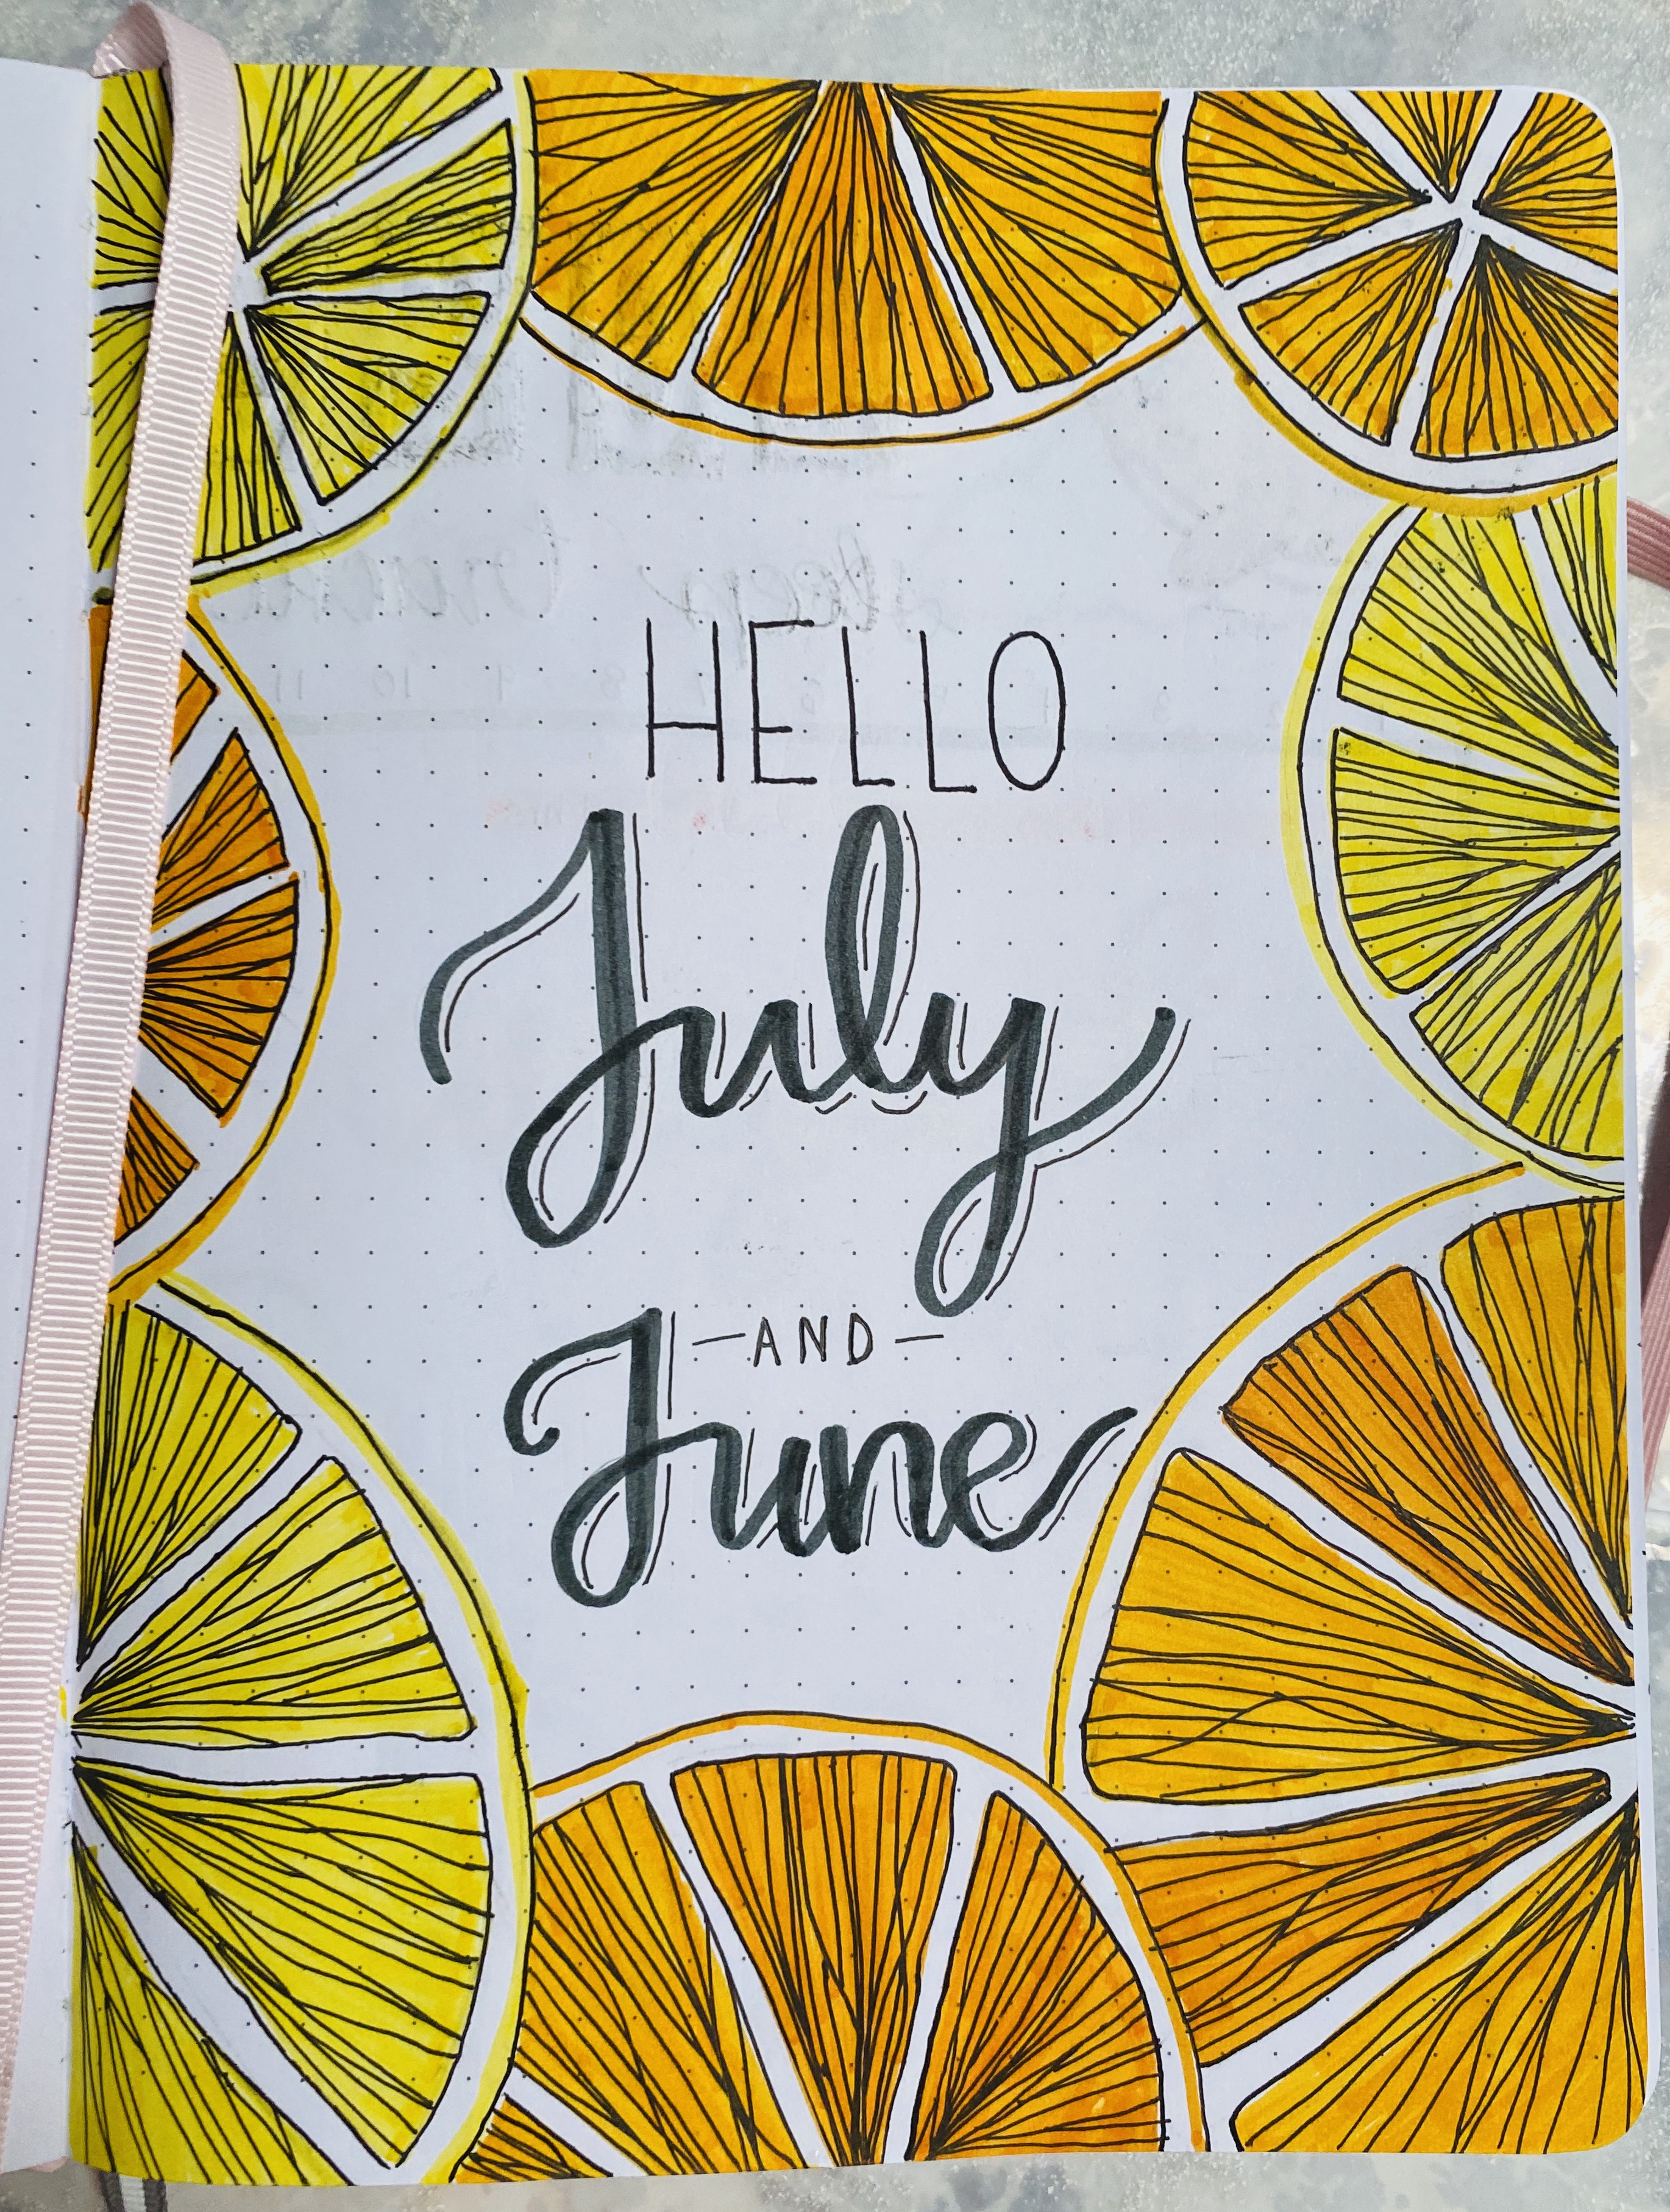 HELLO
July
— AND —
June